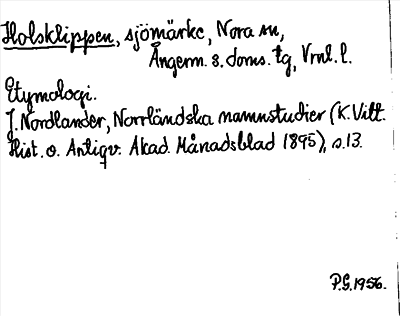 Holsklippen, sjömärke, Nora sn,
Ångerm. s. doms. tg, Vrnl. l.
Etymologi.
J. Nordlander, Norrländska namnstudier (K. Vitt.
Hist. o. Antiqv. Akad. Månadsblad 1895), s. 13.
P.G. 1956.